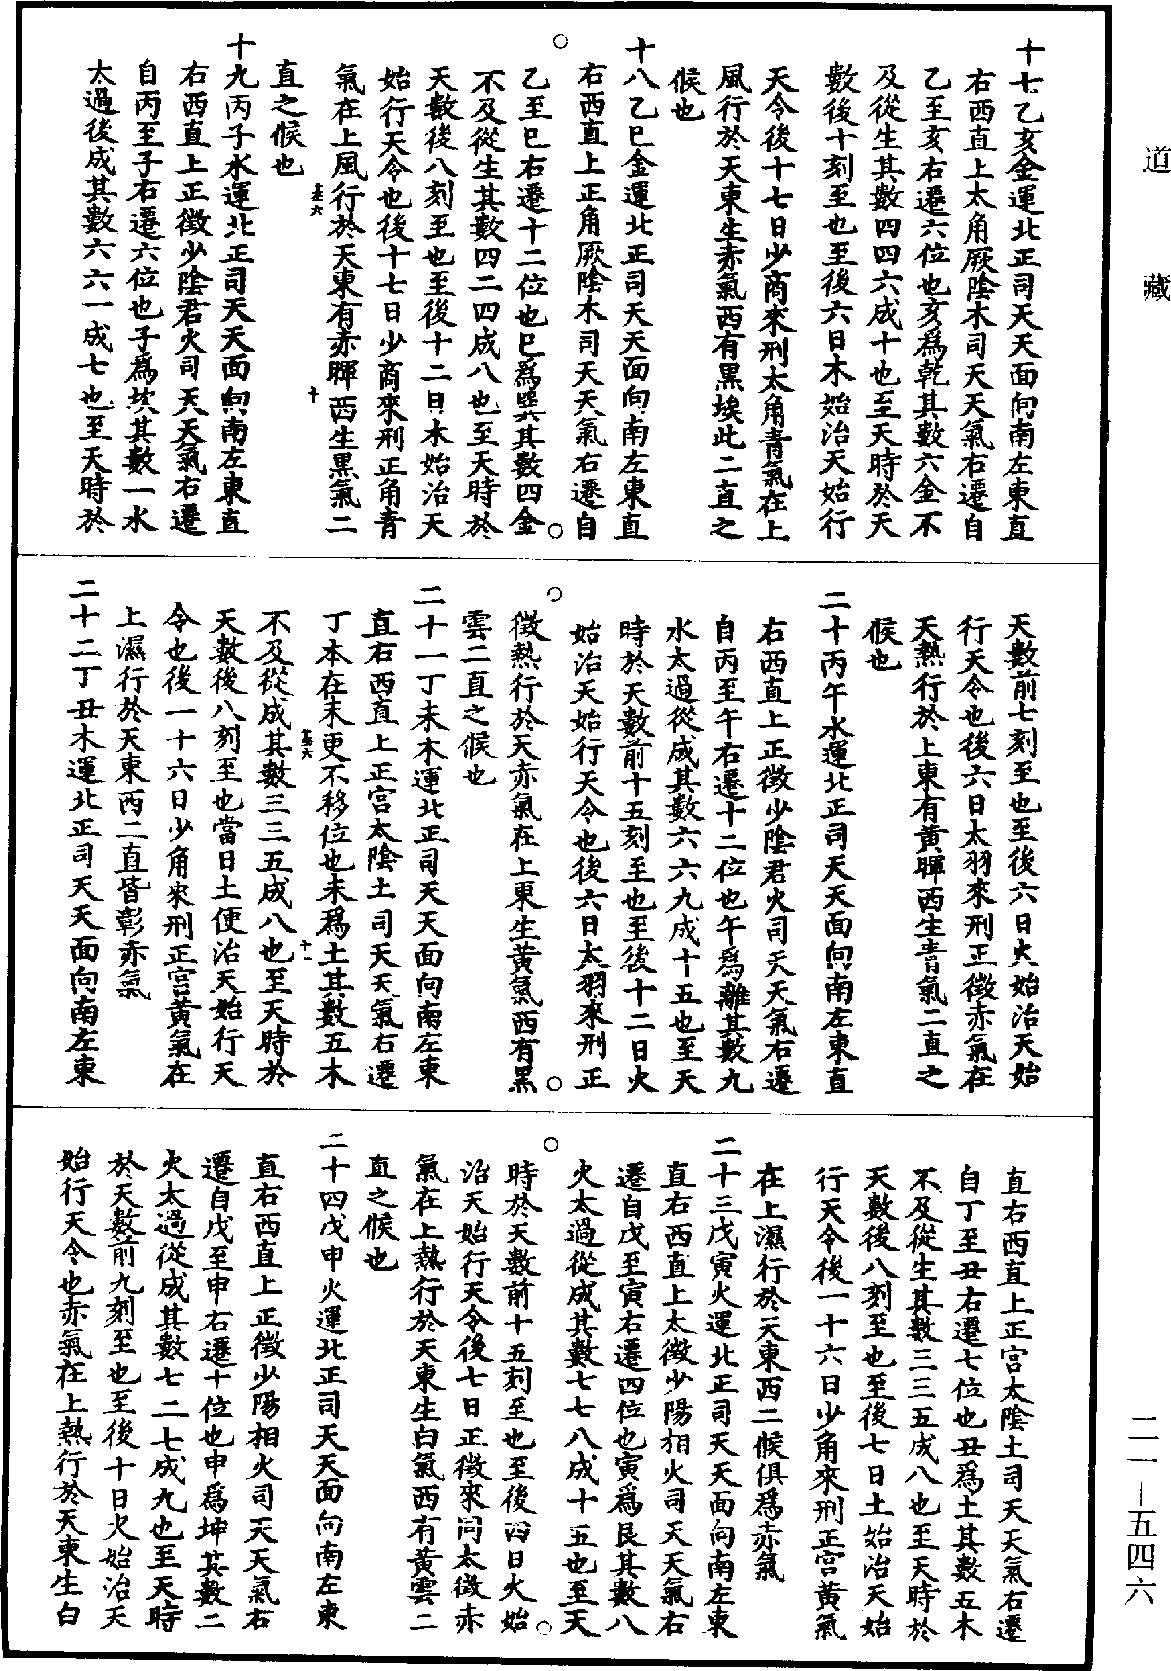 道藏
十七乙亥金運北正司天天面向南左東直
右西直上太角厥陰木司天天氣右遷自
乙至亥右遷六位也亥爲乾其數六金不
及從生其數四四六成十也至天時於天
數後十刻至也至後六日木始治天始行
天令後十七日少商來刑太角青氣在上
風行於天東生赤氣西有黑埃此二直之
候也
十八乙巳金運北正司天天面向南左東直
右西直上正角厥陰木司天天氣右遷自
乙至巳右遷十二位也巳爲巽其數四金
不及從生其數四二四成八也至天時於
天數後八刻至也至後十二日木始治天
始行天令也後十七日少商來刑正角青
氣在上風行於天東有赤暉西生黑氣二
直之候也
十九丙子水運北正司天天面向南左東直
右西直上正徵少陰君火司天天氣右遷
自丙至子右遷六位也子爲坎其數一水
太過後成其數六六一成七也至天時於
天數前七刻至也至後六日火始治天始
行天令也後六日太羽來刑正徵赤氣在
天熱行於上東有黃暉西生青氣二直之
候也
二十丙午水運北正司天天面向南左東直
右西直上正徵少陰君火司天天氣右遷
自丙至午右遷十二位也午爲離其數九
水太過從成其數六六九成十五也至天
時於天數前十五刻至也至後十二日火
始治天始行天令也後六日太羽來刑正
徵熱行於天赤氣在上東生黃氣西有黑
雲二直之候也
二十一丁未木運北正司天天面向南左東
直右西直上正宮太陰土司天天氣右遷
丁本在未更不移位也未爲土其數五木
不及從成其數三三五成八也至天時於
天數後八刻至也當日土便治天始行天
令也後一十六日少角來刑正宮黃氣在
上濕行於天東西二直皆彰赤氣
二十二丁丑木運北正司天天面向南左東
直右西直上正宮太陰土司天天氣右遷
自丁至丑右遷七位也丑爲土其數五木
不及從生其數三三五成八也至天時於
天數後八刻至也至後七日土始治天始
行天令後一十六日少角來刑正宮黃氣
在上濕行於天東西二候俱爲赤氣
二十三戊寅火運北正司天天面向南左東
直右西直上太徵少陽相火司天天氣右
遷自戊至寅右遷四位也寅爲艮其數八
火太過從成其數七七八成十五也至天
時於天數前十五刻至也至後四日火始
治天始行天令後七日正徵來同太徵赤
氣在上熱行於天東生白氣西有黃雲二
直之候也
二十四戊申火運北正司天天面向南左東
直右西直上正徵少陽相火司天天氣右
遷自戊至申右遷十位也申爲坤其數二
火太過從成其數七二七成九也至天時
於天數前九刻至也至後十日火始治天
始行天令也赤氣在上熱行於天東生白
二一—五四六